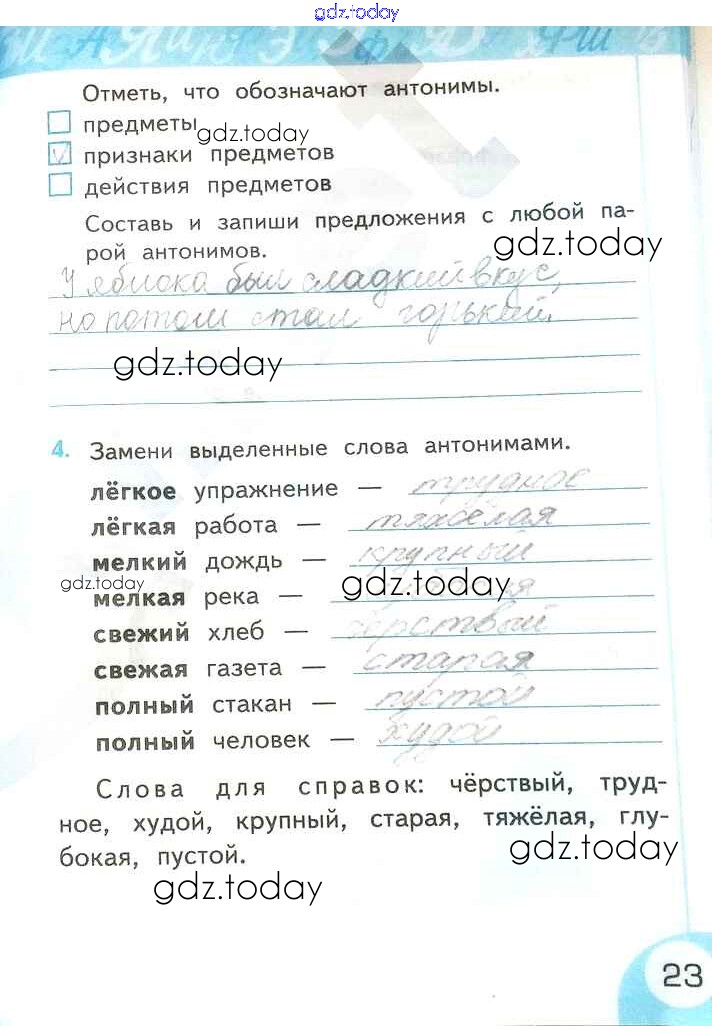 gdz.today
Отметь, что обозначают антонимы.
предметы gdz.today
V признаки предметов
действия предметов
Составь и запиши предложения с любой па-
рой антонимов.
gdz.today
У яблока был сладкий вкус,
но потом стал горький.
gdz.today
4. Замени выделенные слова антонимами.
лёгкое упражнение — трудное
лёгкая работа — тяжёлая
мелкий дождь — крупный
gdz.today gdz.today
мелкая река —
свежий хлеб — чёрствый
свежая газета — старая
полный стакан — пустой
полный человек — худой
Слова для справок: чёрствый, труд-
ное, худой, крупный, старая, тяжёлая, глу-
бокая, пустой.
gdz.today
gdz.today
23